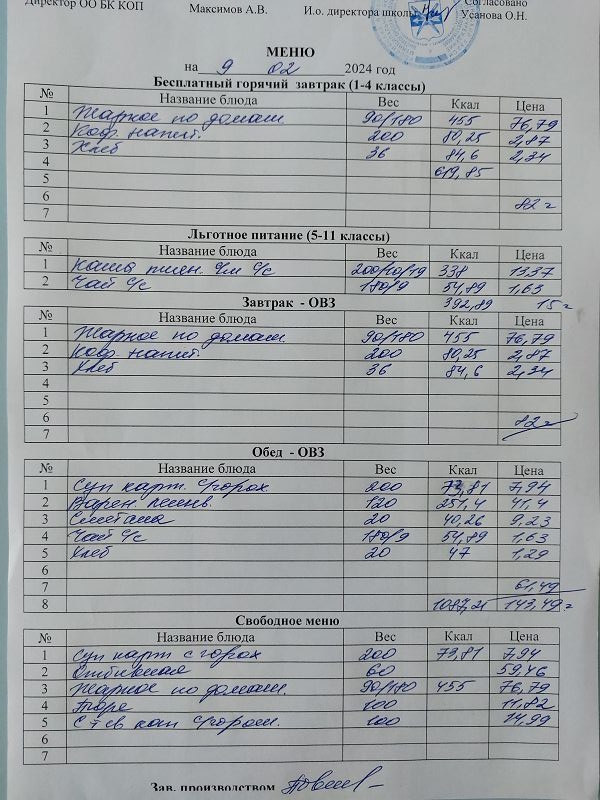 Директор ОО БК КОП Максимов А.В. И.о. директора школы Согласовано
Усанова О.Н.
МЕНЮ
на 9 02 2024 год
Бесплатный горячий завтрак (1-4 классы)
№ Название блюда Вес Ккал Цена
1 Жаркое по домаш 90/180 455 76,79
2 Коф. напит. 200 80,25 2,87
3 Хлеб 36 84,6 2,34
4 619,85
5
6 82=
7
Льготное питание (5-11 классы)
№ Название блюда Вес Ккал Цена
1 Каша пшен. 338 13,37
2 Чай с/с 180/9 54,89 1,63
Завтрак - ОВЗ 392,89 15=
№ Название блюда Вес Ккал Цена
1 Жаркое по домаш. 90/180 455 76,79
2 Коф напит. 200 80,25 2,87
3 Хлеб 36 84,6 2,34
4
5
6 82=
7
Обед - ОВЗ
№ Название блюда Вес Ккал Цена
1 Суп карт. с горох. 200 73,81 7,94
2 Варен. 120 251,4 41,4
3 Сметана 20 40,26 9,23
4 Чай с/с 180/9 54,89 1,63
5 Хлеб 20 47 1,29
6
7 61,49
8 1087,21 143,49=
Свободное меню
№ Название блюда Вес Ккал Цена
1 Суп карт с горох 200 73,81 7,94
2 Отбивная 60 59,46
3 Жаркое по домаш. 90/180 455 76,79
4 Пюре 100 11,82
5 100 14,99
6
7
Зав. производством